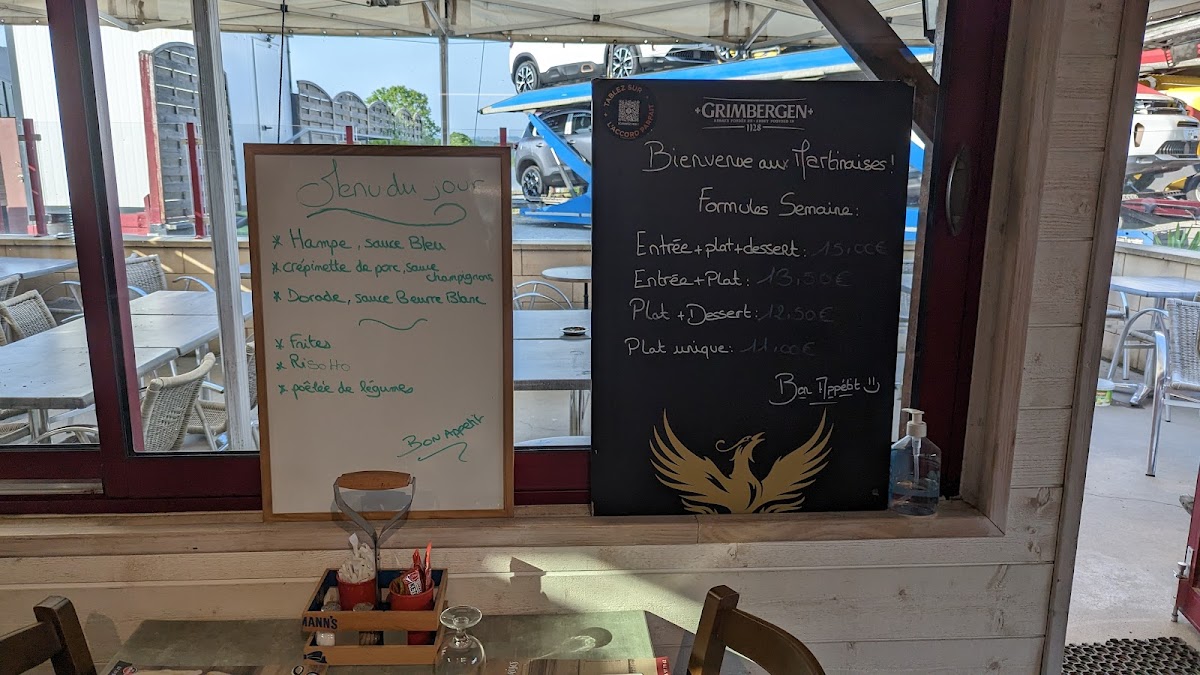 Menu du jour
* Hampe, sauce Bleu
* crépinette de porc, sauce
champignons
* Dorade, sauce Beurre Blanc
* Frites
* Risotto
* poêlée de légumes
Bon Appétit
TABLEZ SUR
L'ACCORD PARFAIT
GRIMBERGEN
1128
Bienvenue aux Martinaises !
Formules Semaine :
Entrée + plat + dessert : 15,00€
Entrée + Plat : 13,50€
Plat + Dessert : 12,50€
Plat unique : 11,00€
Bon Appétit :)
MANN'S